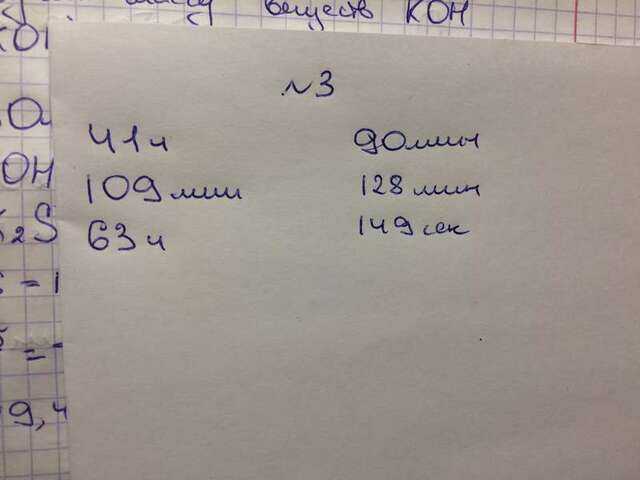 №3
41ч 90мин
109 мин 128 мин
63ч 149 сек
веществ KOH
9,4